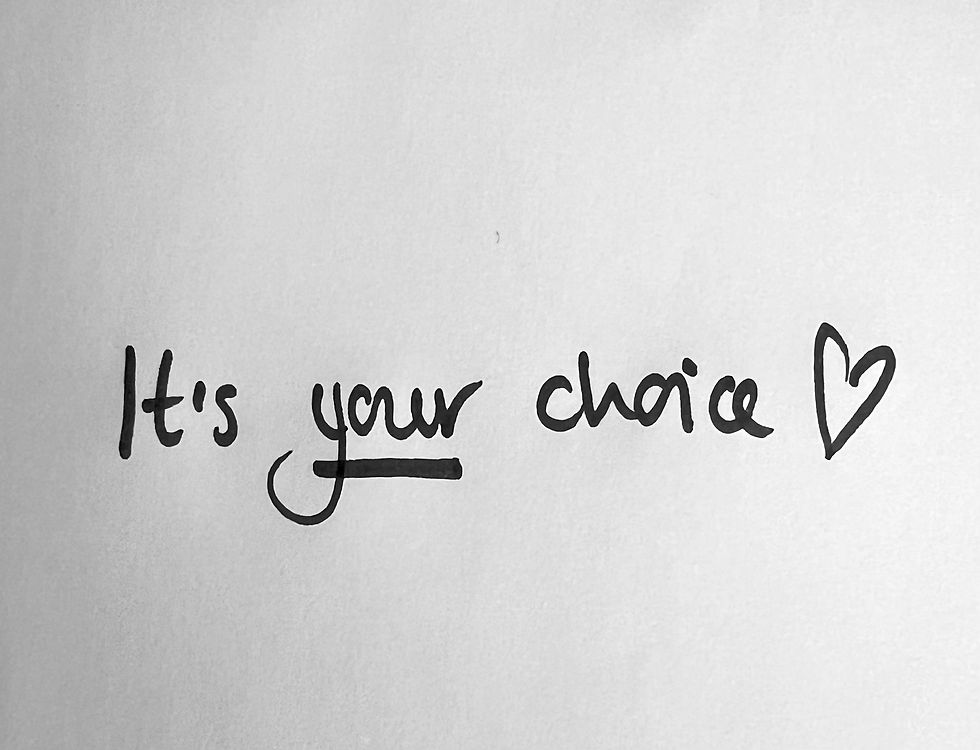 It's your choice ♡